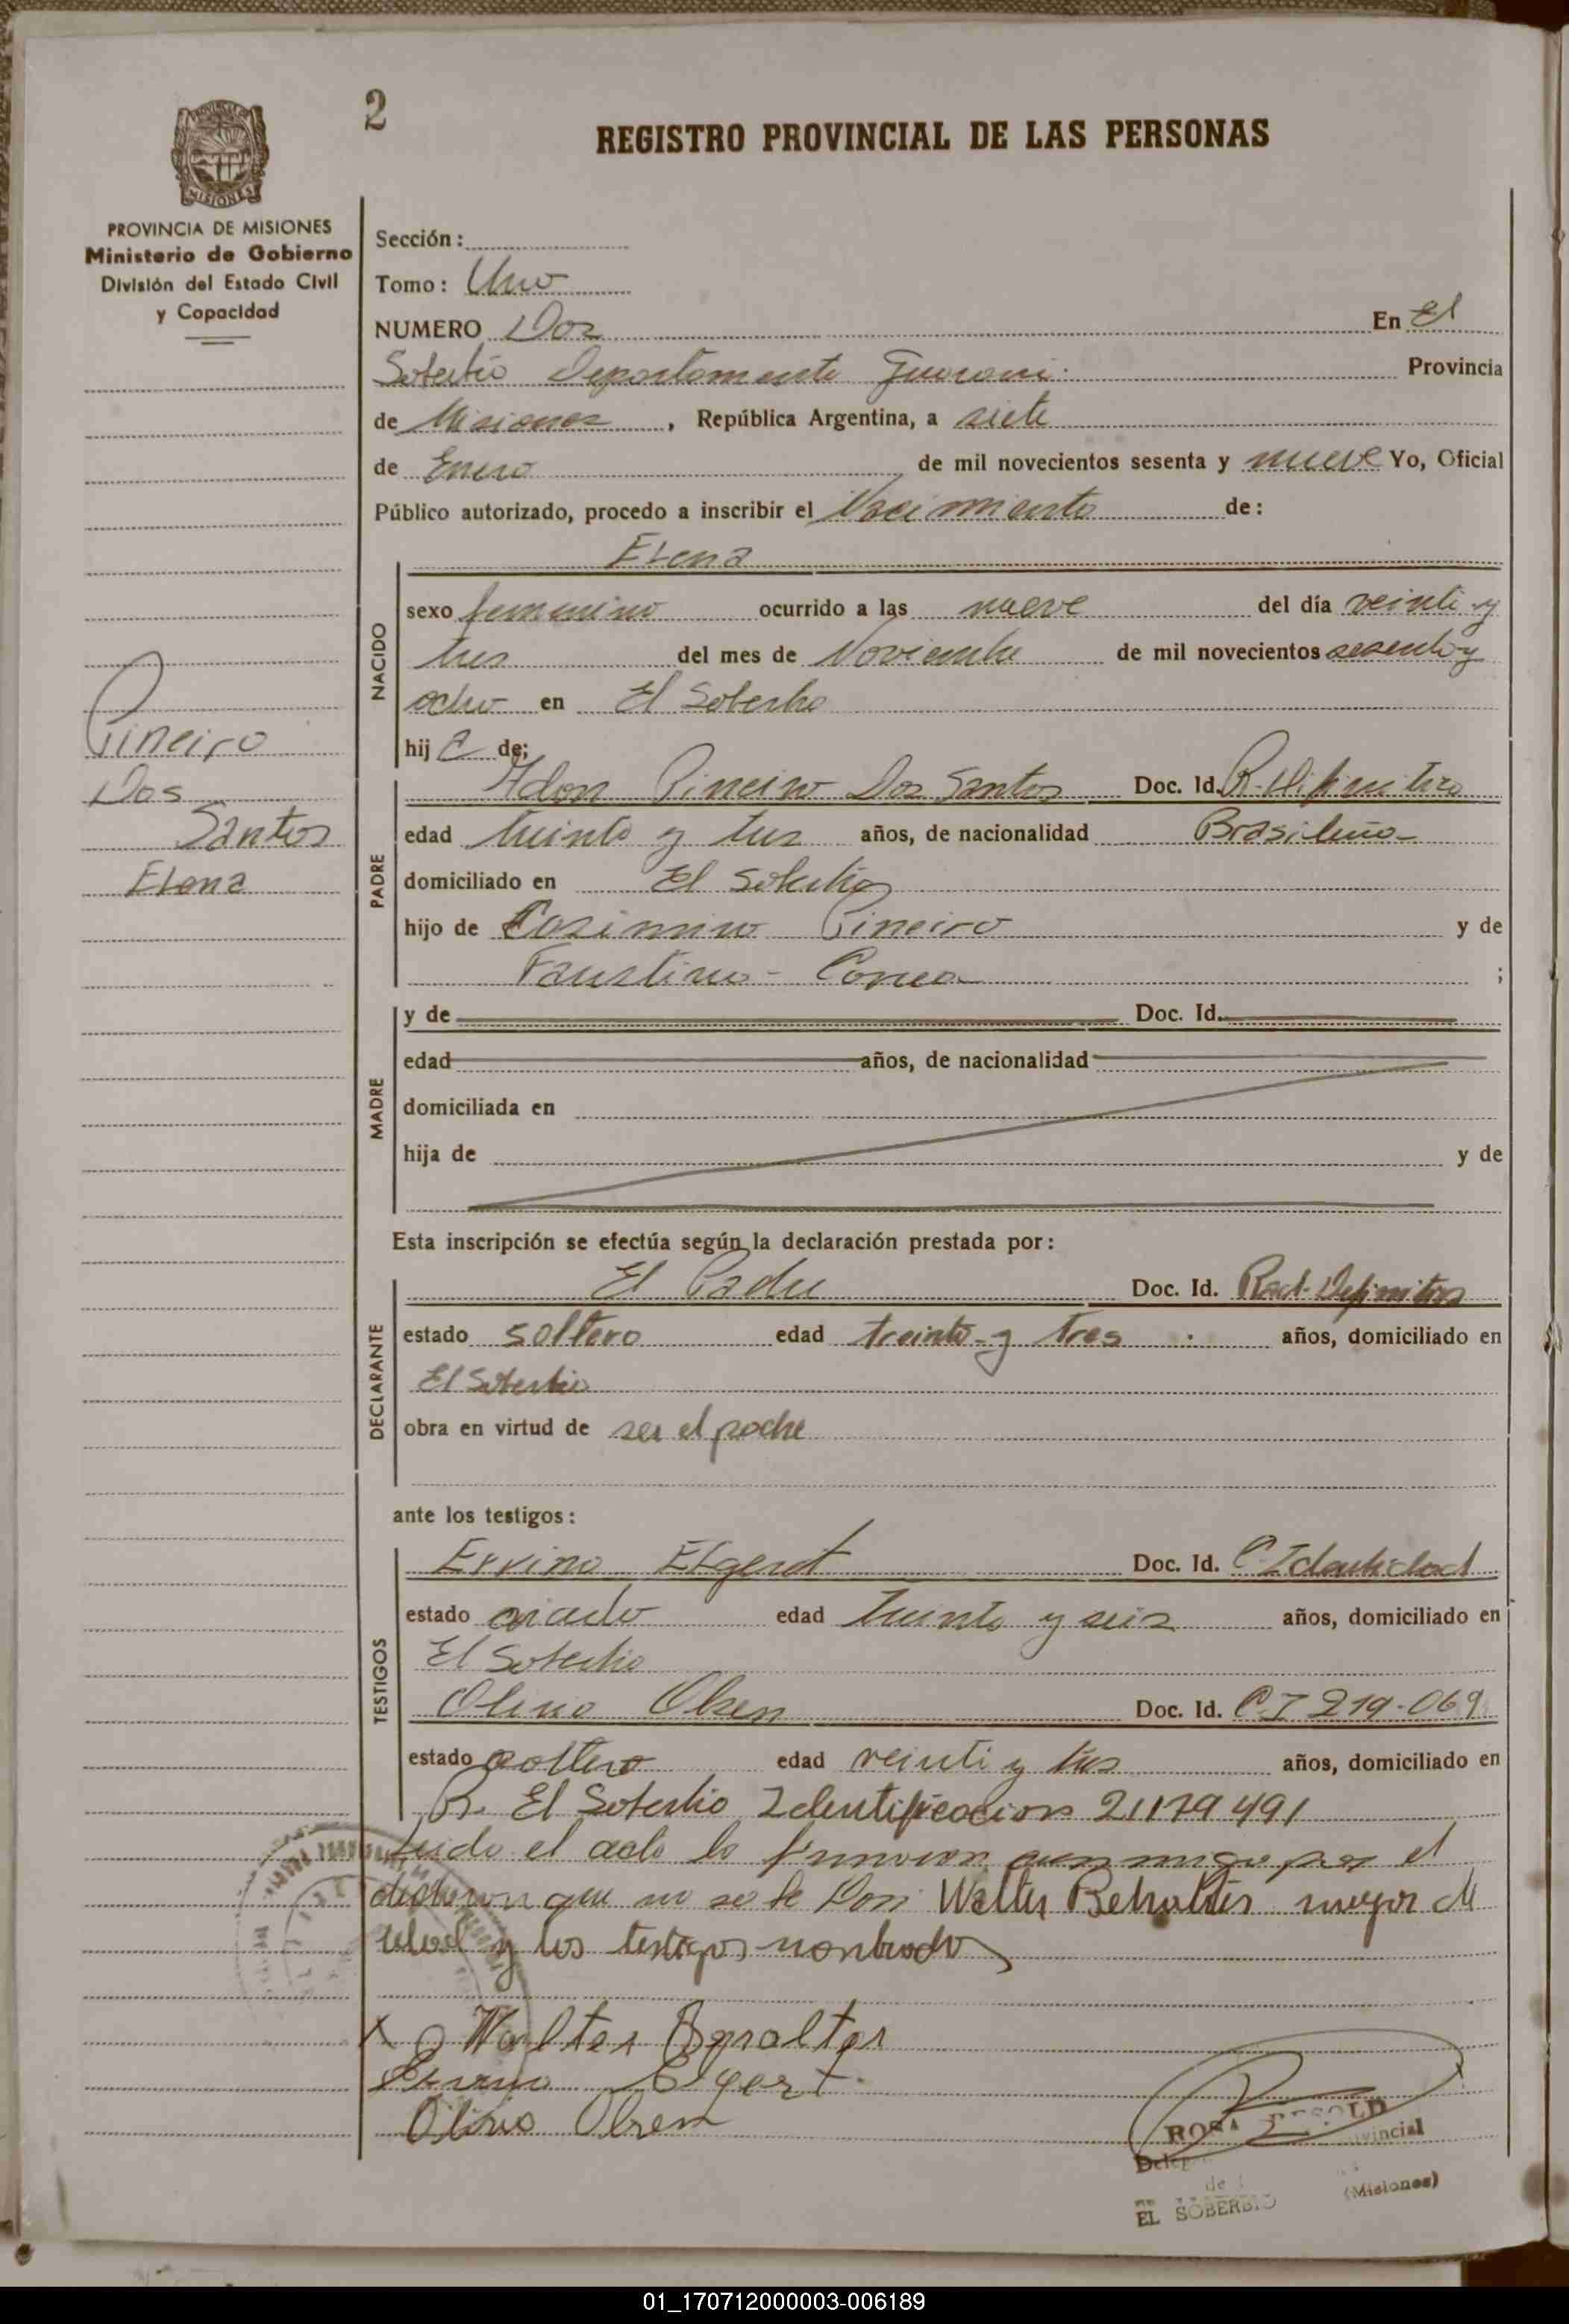 2
REGISTRO PROVINCIAL DE LAS PERSONAS
PROVINCIA DE MISIONES
MISIONES
PROVINCIA DE MISIONES
Ministerio de Gobierno
División del Estado Civil
y Capacidad
Pineiro
Dos
Santos
Elena
Sección:
Tomo: Uno
NUMERO Dos En El
Soberbio Departamento Guarani Provincia
de Misiones, República Argentina, a siete
de Enero de mil novecientos sesenta y nueve Yo, Oficial
Público autorizado, procedo a inscribir el Nacimiento de:
NACIDO
Elena
sexo femenino ocurrido a las nueve del día veinti y
tres del mes de Noviembre de mil novecientos sesenta y
ocho en El Soberbio
hija de;
PADRE
Adon Pineiro Dos Santos Doc. Id. R. Difinitiva
edad treinta y tres años, de nacionalidad Brasileña
domiciliado en El Soberbio
hijo de Casimiro Pineiro y de
Faustina Correa ;
MADRE
y de Doc. Id.
edad años, de nacionalidad
domiciliada en
hija de y de
Esta inscripción se efectúa según la declaración prestada por:
DECLARANTE
El Padre Doc. Id. Rad. Definitiva
estado soltero edad treinta y tres años, domiciliado en
El Soberbio
obra en virtud de ser el padre
ante los testigos:
TESTIGOS
Ervino Elgert Doc. Id. C Identidad
estado casado edad treinta y seis años, domiciliado en
El Soberbio
Olino Olsen Doc. Id. C I 219.069
estado soltero edad veinti y tres años, domiciliado en
El Soberbio Identificacion 21179491
Leido el acto lo firmaron conmigo por el
que no sabe Don Walter mayor de
edad y los testigos nonbrados
X Walter
Ervino Elgert
Olino Olsen
ROSA
(Misiones)
EL SOBERBIO
01_170712000003-006189